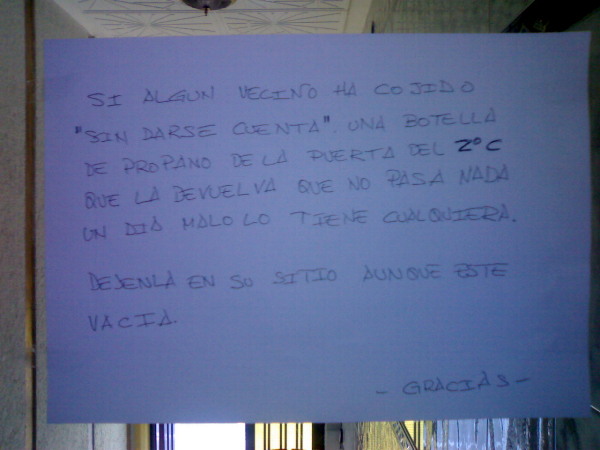 SI ALGUN VECINO HA COJIDO
"SIN DARSE CUENTA". UNA BOTELLA
DE PROPANO DE LA PUERTA DEL 2ºC
QUE LA DEVUELVA QUE NO PASA NADA
UN DIA MALO LO TIENE CUALQUIERA.
DEJENLA EN SU SITIO AUNQUE ESTE
VACIA.
- GRACIAS -